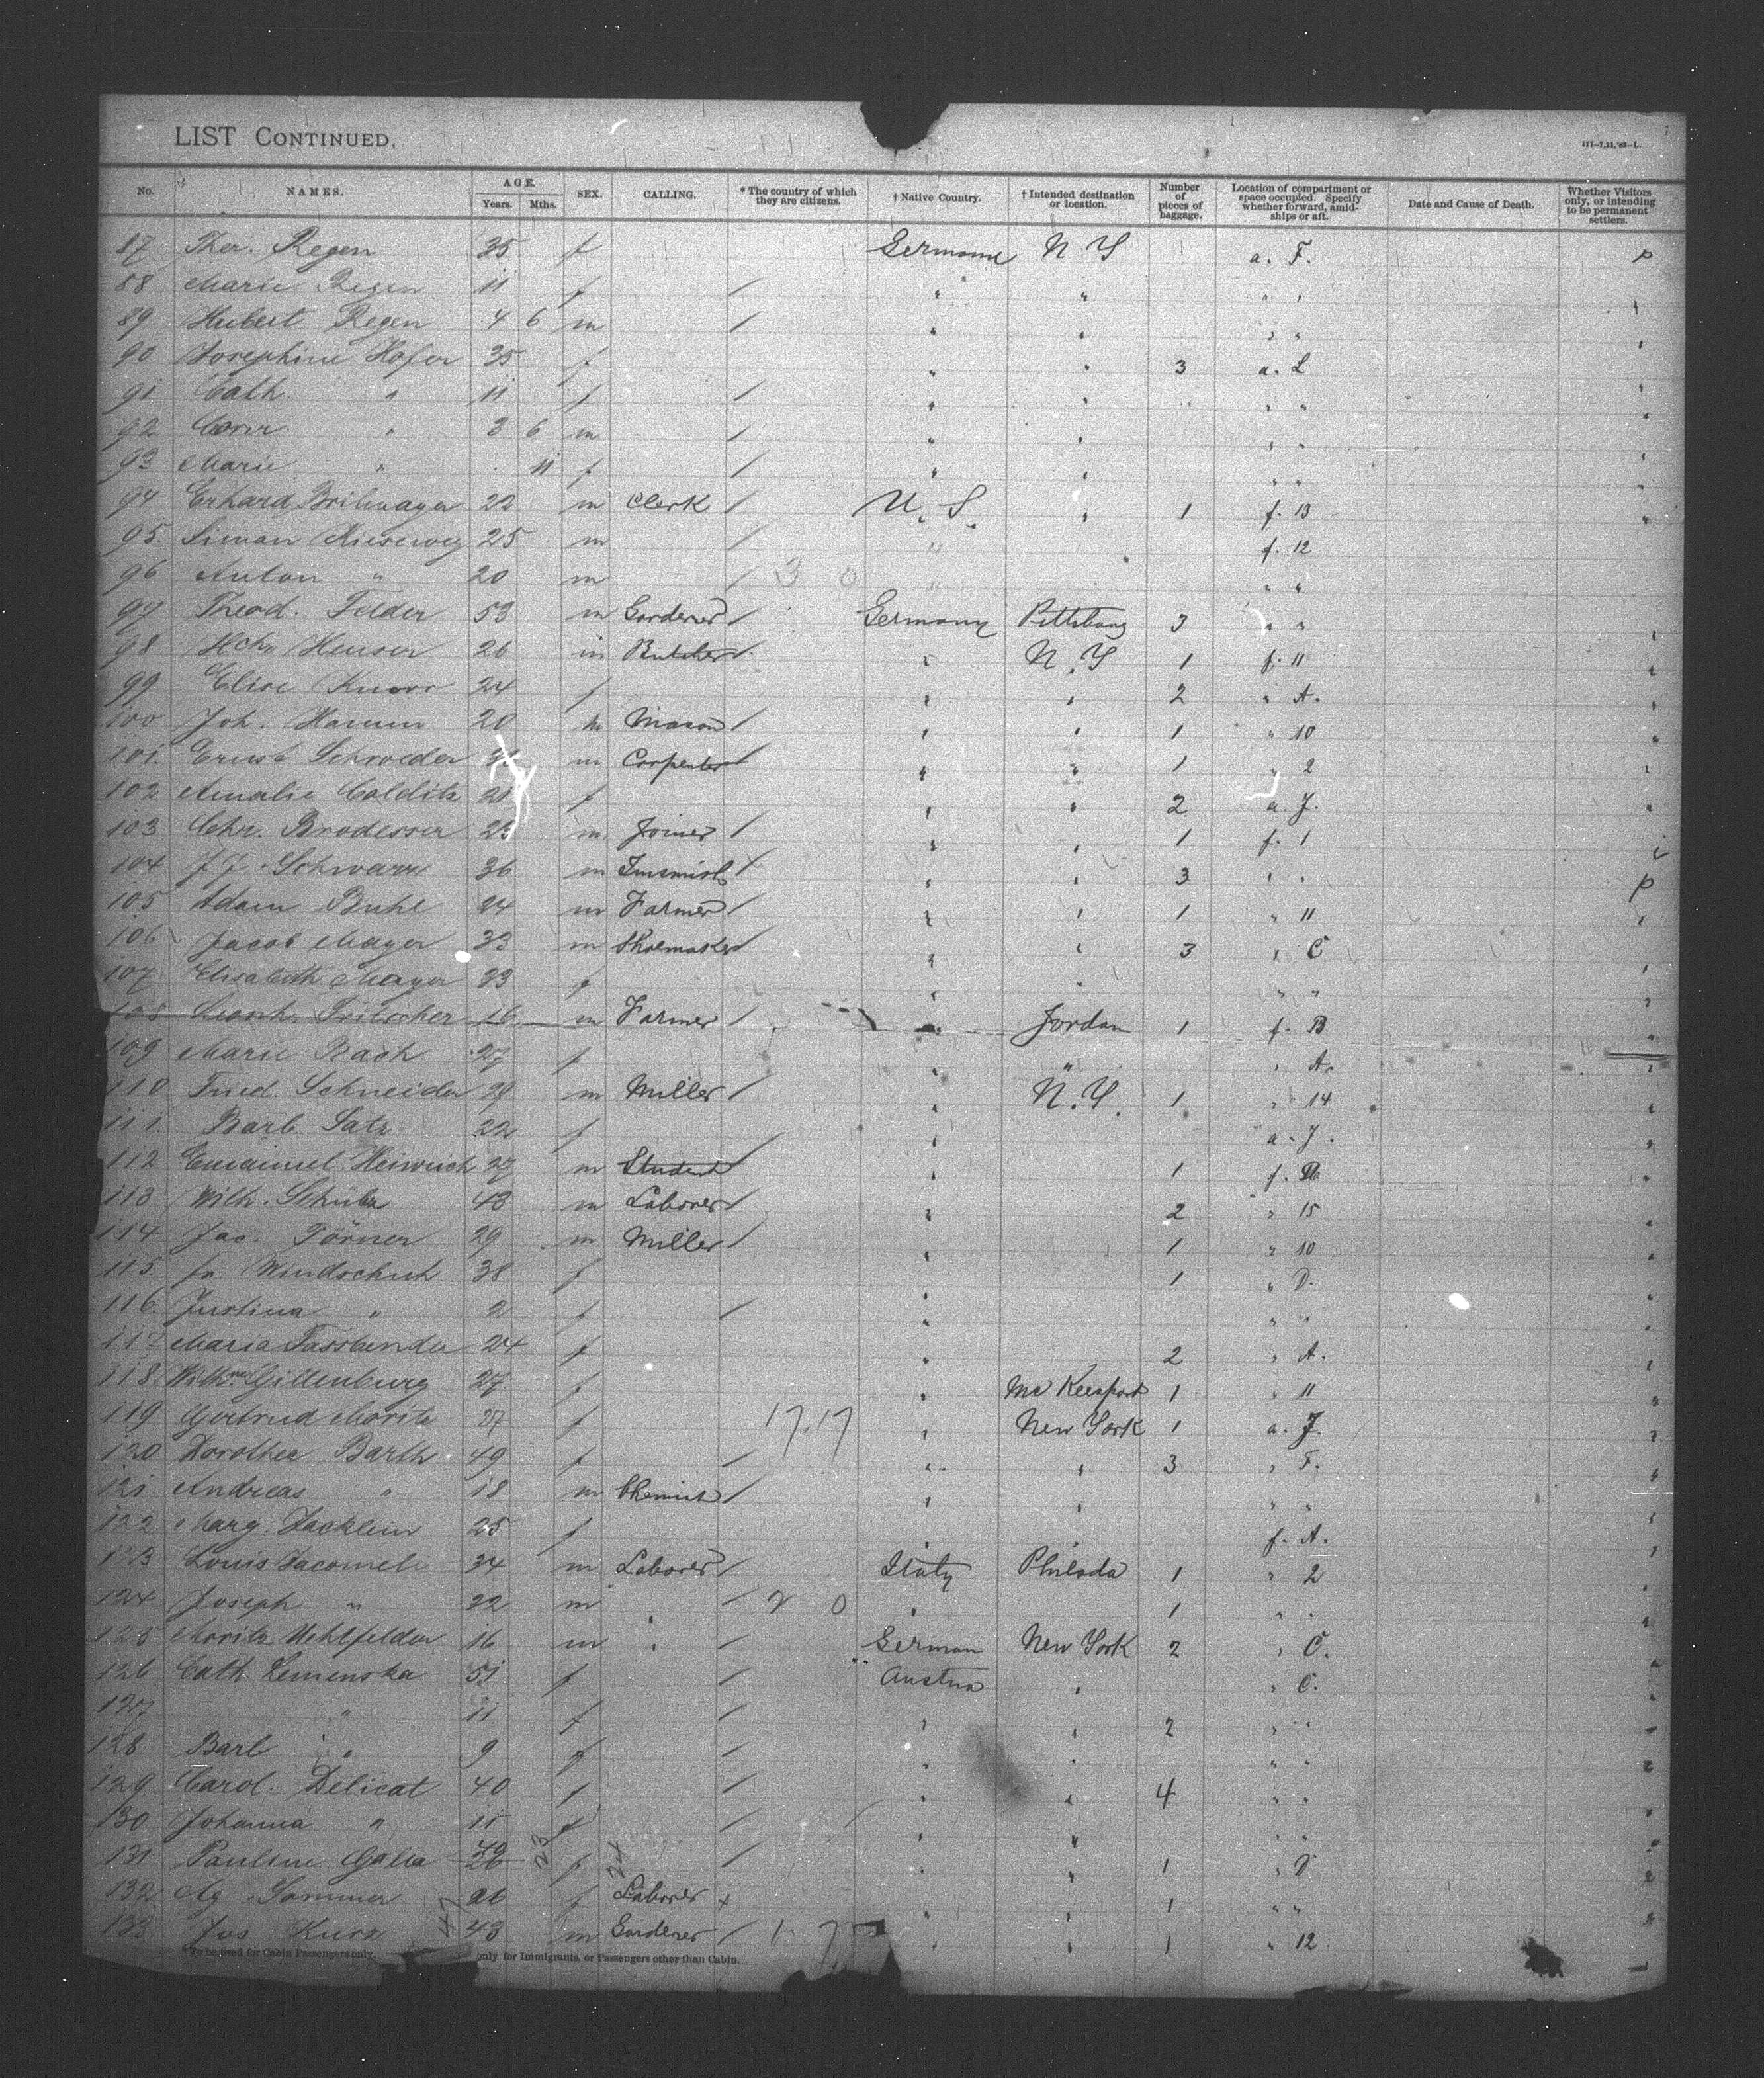 LIST CONTINUED.
III—7,21,'83—L.
No. NAMES. AGE. Years. Mths. SEX. CALLING. * The country of which they are citizens. † Native Country. † Intended destination or location. Number of pieces of baggage. Location of compartment or space occupied. Specify whether forward, amidships or aft. Date and Cause of Death. Whether Visitors only, or intending to be permanent settlers.
87 Ther. Regen 35 f Germany N. Y a. F. p
88 Marie Regen 11 f / " " " "
89 Hubert Regen 4 6 m / " " " "
90 Josephine Hofer 35 f " " 3 a. L
91 Cath. " 11 f / " " " "
92 " 3 6 m / " " " "
93 Marie " 11 f / " " " "
94 Erhard 22 m Clerk / U. S. " 1 f. 13
95. Simon 25 m / " " f. 12
96 Anton " 20 m / 3 0 " " "
97 Theod. Felder 53 m Gardener / Germany Pittsburg 3 " "
98 Hch. Heuser 26 m Butcher / " N. Y 1 f. 11
99 Elise Knorr 24 f " " 2 " A.
100 Joh. Hamm 20 m Mason / " " 1 " 10
101. Ernst Schroeder m Carpenter " " 1 " 2
102 Amalie Colditz 21 f " " 2 a. J.
103 Chr. Brodesser 25 m Joiner / " " 1 f. 1
104 J. J. Schwarz 36 m / " " 3 " " p
105 Adam Buhl 24 m Farmer / " " 1 " 11
106. Jacob Mayer 33 m Shoemaker / " " 3 " C
107 Elisabeth Mayer 23 f " " " "
108 Leonh. Fritscher 16 m Farmer / " Jordan 1 f. B
109 Marie Rach 27 f " " " A.
110 Fried. Schneider 29 m Miller / " N. Y. 1 " 14
111. Barb. Satz 22 f " a. J.
112 Emanuel Heinrich 27 m Student " 1 f. B
113 Wilh. Schütz 43 m Laborer / " 2 " 15
114 Jac. Törner 29 m Miller / " 1 " 10
115. Windschuh 38 f " 1 " D.
116. Justina " 2 f / " " "
117 Maria Fassbender 24 f " 2 " A.
118. Wilhne Gillenburg 27 f " Mc Keesport 1 " 11
119 Gertrud Moritz 27 f 17.17 " New York 1 a. J.
120 Dorothea Barth 49 f / " " 3 " F.
121 Andreas " 18 m Chemist / " " " "
122 Marg. Jacklein 25 f " " f. A.
123 Louis Jacomeli 34 m Laborer / Italy Philada 1 " 2
124 Joseph " 22 m " / 2 0 " 1 " "
125 Moritz Uehlfelder 16 m " / German New York 2 " C.
126 Cath. 51 f / Austria " " C.
127 " 11 f / " " 2 " "
128 Barb " 9 f / " " " "
129 Carol. Delicat 40 f / " " 4 " "
130 Johanna " 11 f / " " " "
131 Pauline Galla 42 26 23 f 24 / " " 1 " D
132 Ag. Sommer 26 f Laborer + " " 1 " "
133 Jos Kurz 47 43 m Gardener / 1 " " 1 " 12
* To be used for Cabin Passengers only. only for Immigrants, or Passengers other than Cabin.